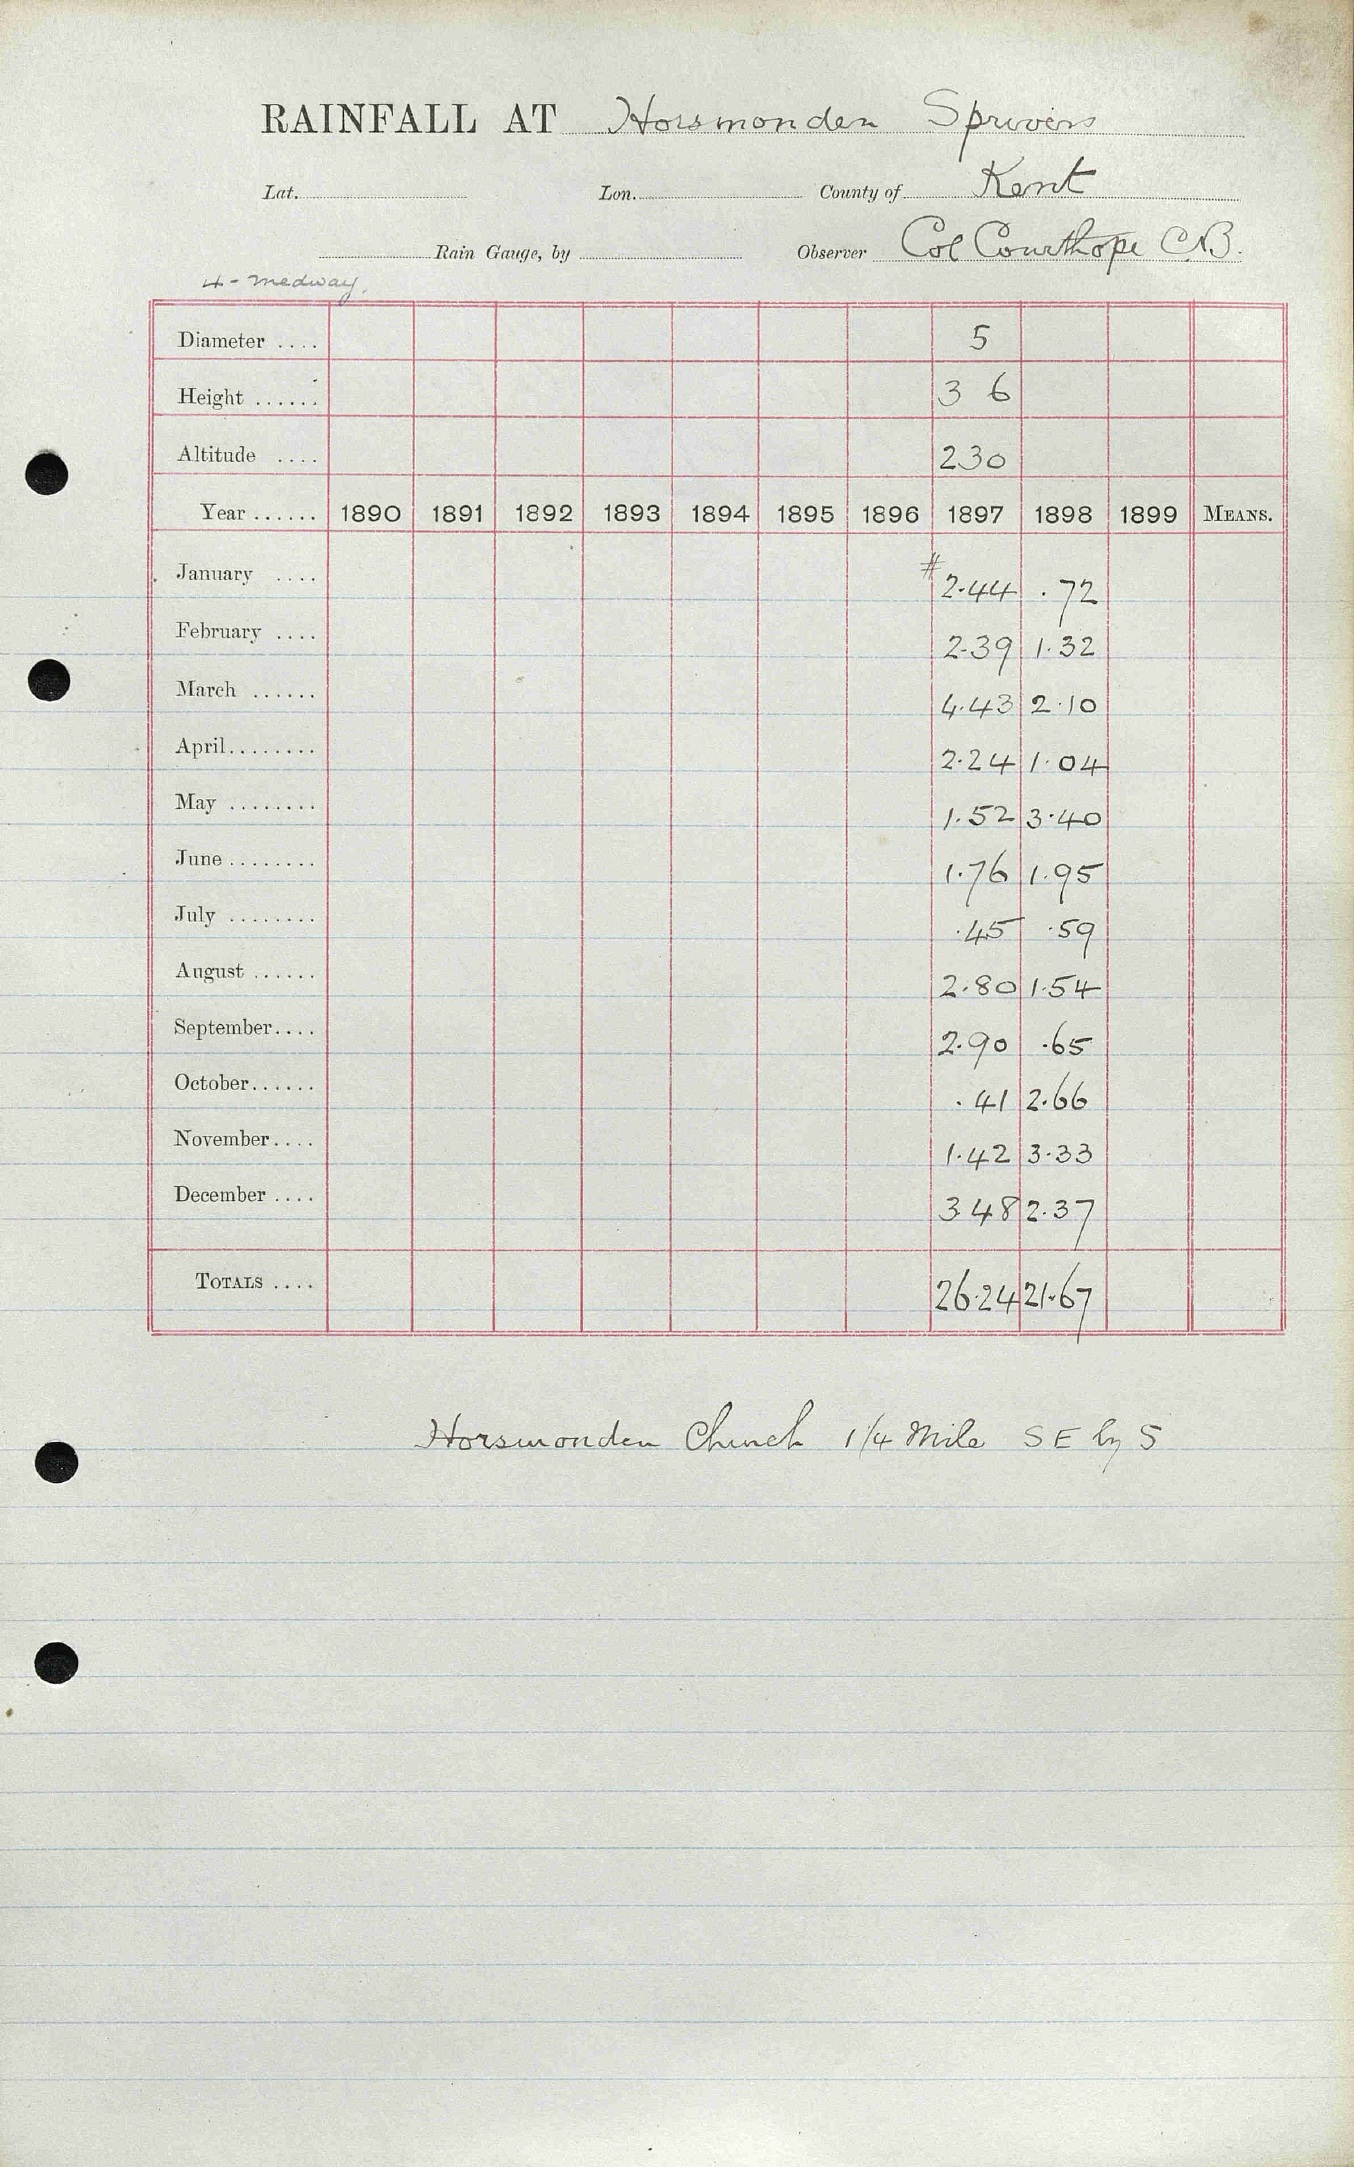 RAINFALL AT Horsmonden Sprivers
Lat. Lon. County of Kent
Rain Gauge, by Observer Col Courthope C.B.
4 - Medway.
Diameter .... 5
Height ...... 3 6
Altitude .... 230
Year ...... 1890 1891 1892 1893 1894 1895 1896 1897 1898 1899 MEANS.
January .... # 2.44 .72
February .... 2.39 1.32
March ...... 4.43 2.10
April ........ 2.24 1.04
May ........ 1.52 3.40
June ........ 1.76 1.95
July ........ .45 .59
August ...... 2.80 1.54
September .... 2.90 .65
October ...... .41 2.66
November .... 1.42 3.33
December .... 3.48 2.37
TOTALS .... 26.24 21.67
Horsmonden Church 1 1/4 Mile S E by S